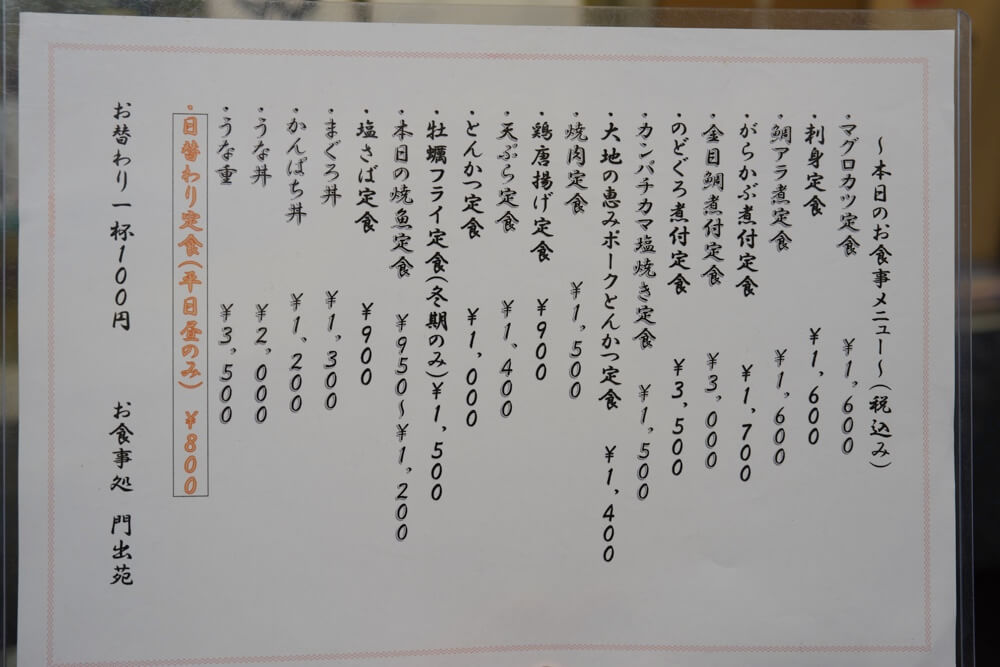 ～本日のお食事メニュー～(税込み)
・マグロカツ定食 ¥1,600
・刺身定食 ¥1,600
・鯛アラ煮定食 ¥1,600
・がらかぶ煮付定食 ¥1,700
・金目鯛煮付定食 ¥3,000
・のどぐろ煮付定食 ¥3,500
・カンパチカマ塩焼き定食 ¥1,500
・大地の恵みポークとんかつ定食 ¥1,400
・焼肉定食 ¥1,500
・鶏唐揚げ定食 ¥900
・天ぷら定食 ¥1,400
・とんかつ定食 ¥1,000
・牡蠣フライ定食(冬期のみ)¥1,500
・本日の焼魚定食 ¥950～¥1,200
・塩さば定食 ¥900
・まぐろ丼 ¥1,300
・かんぱち丼 ¥1,200
・うな丼 ¥2,000
・うな重 ¥3,500
・日替わり定食(平日昼のみ) ¥800
お替わり一杯100円 お食事処 門出苑